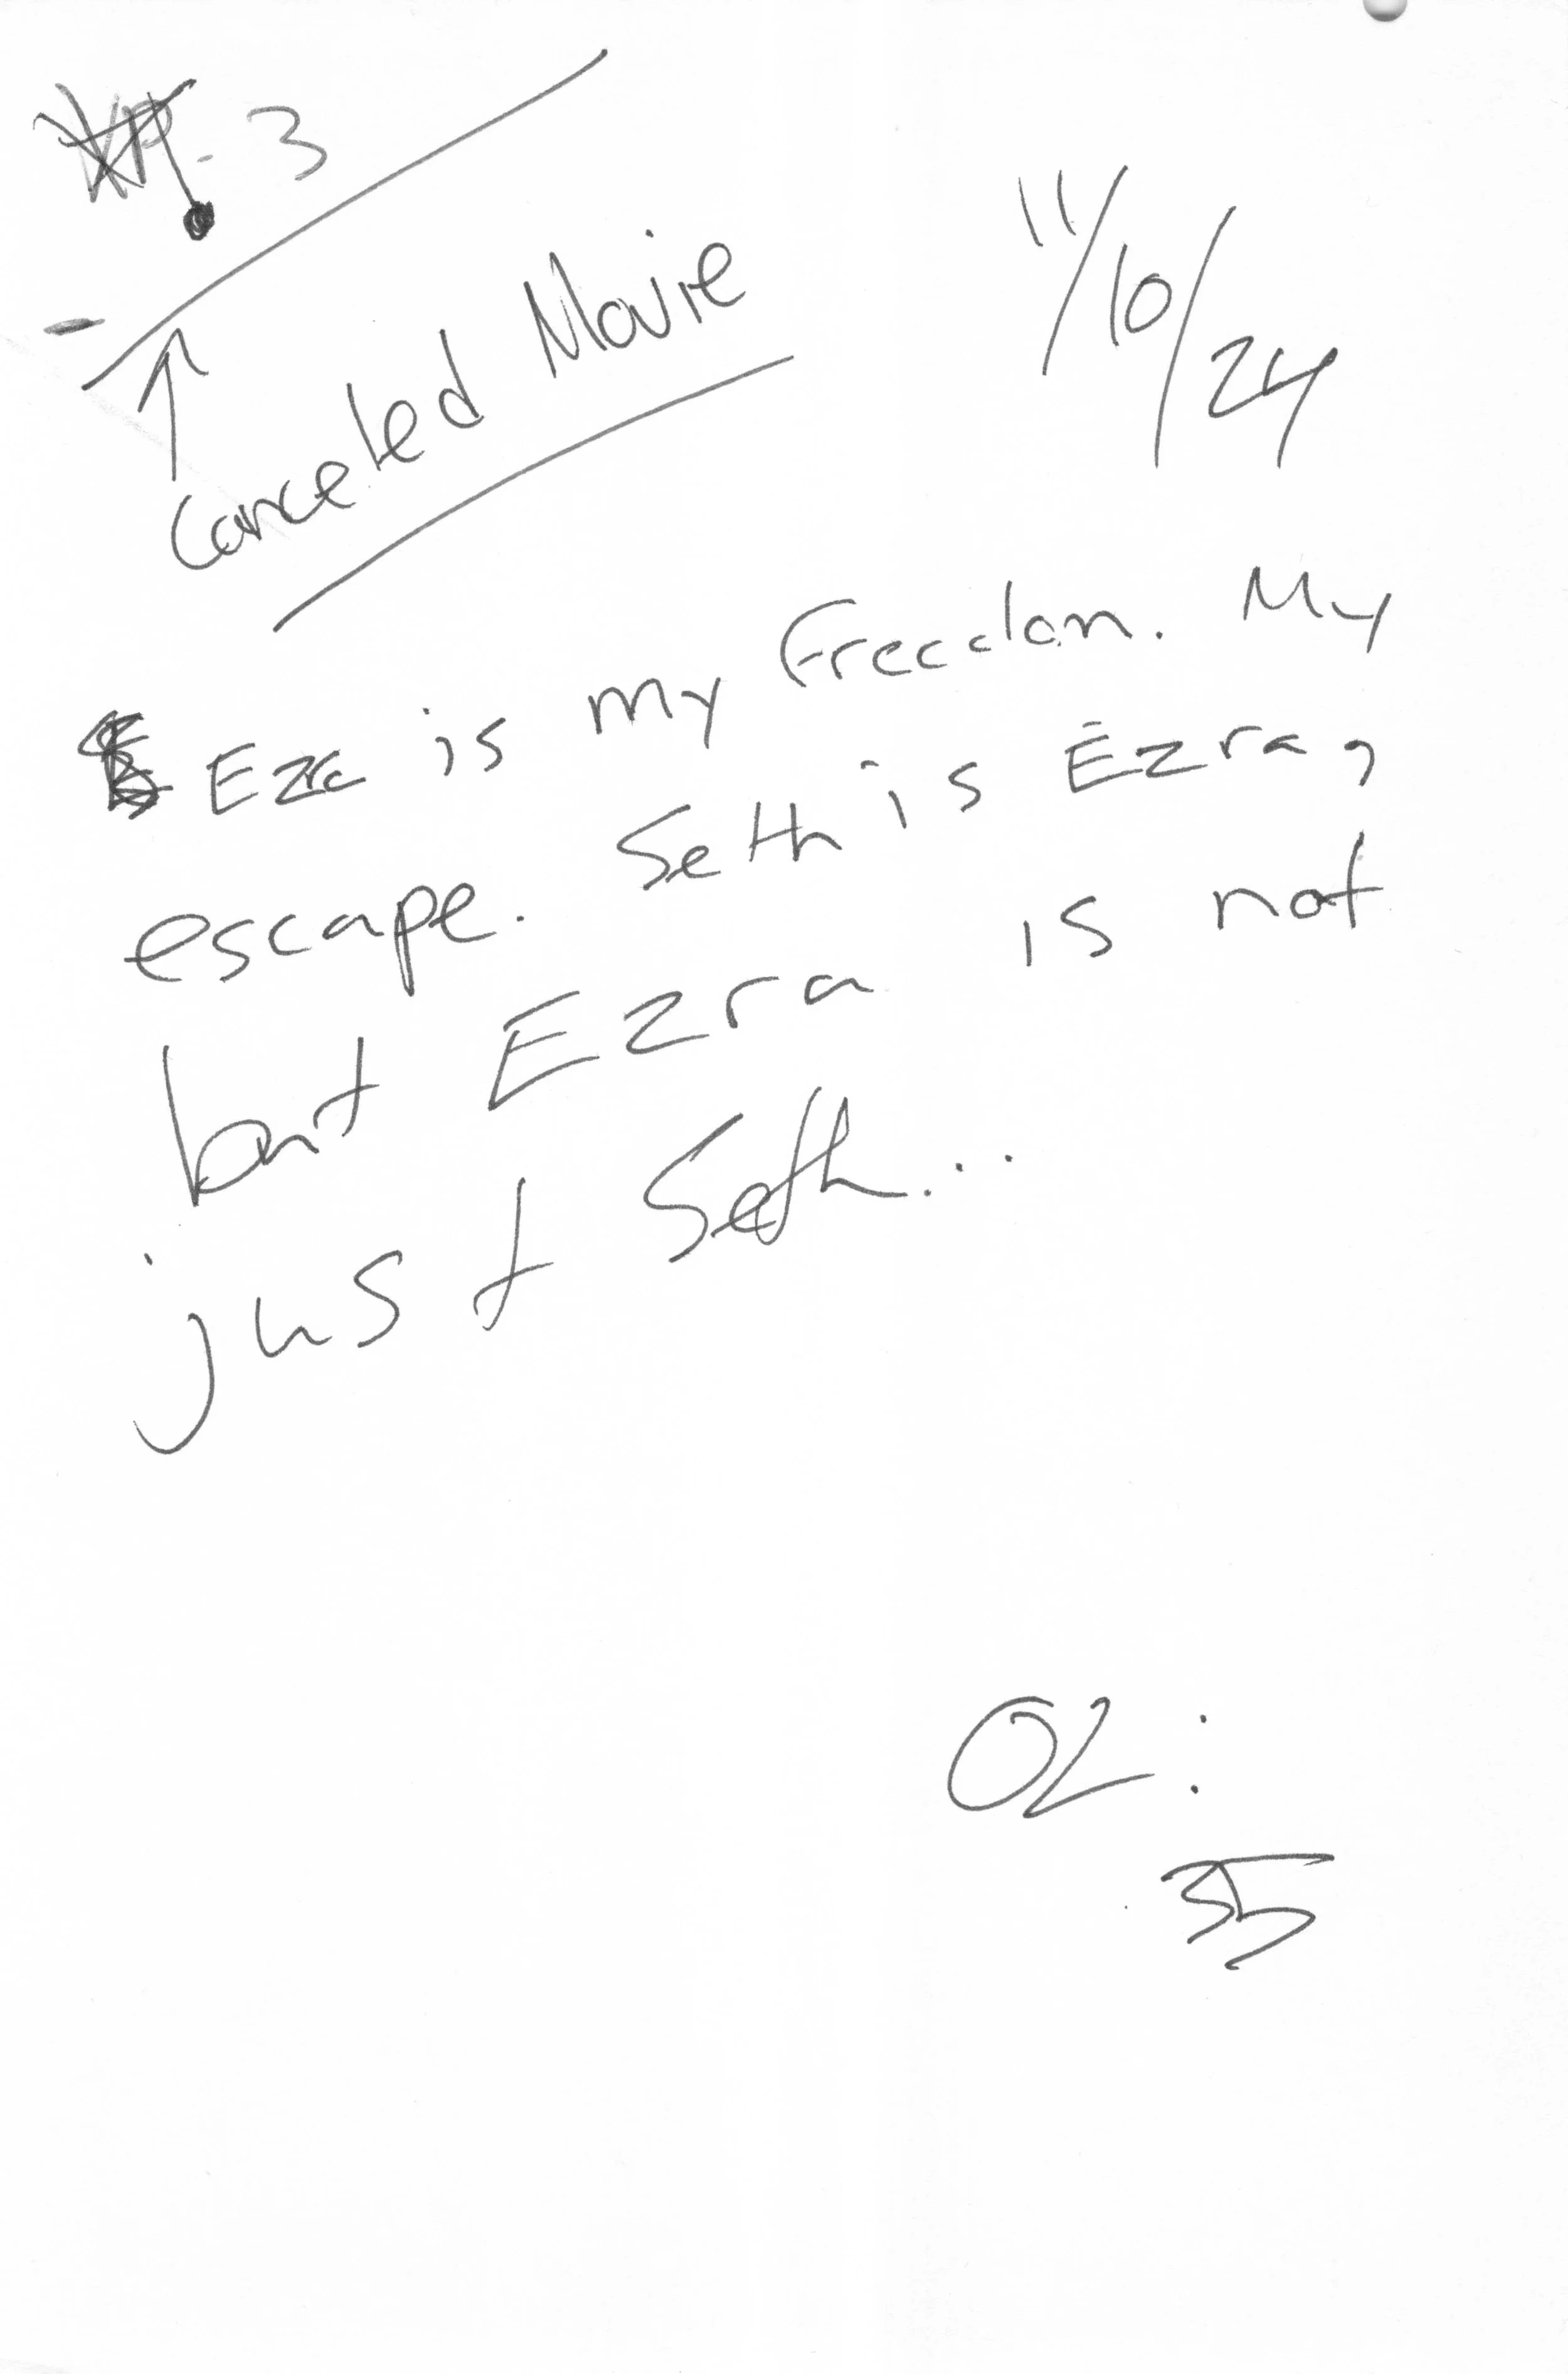 - 3
Canceled Movie
11/10/24
is my freedom. My
escape. Seth is Ezra,
but Ezra is not
just Seth...
OL:
35